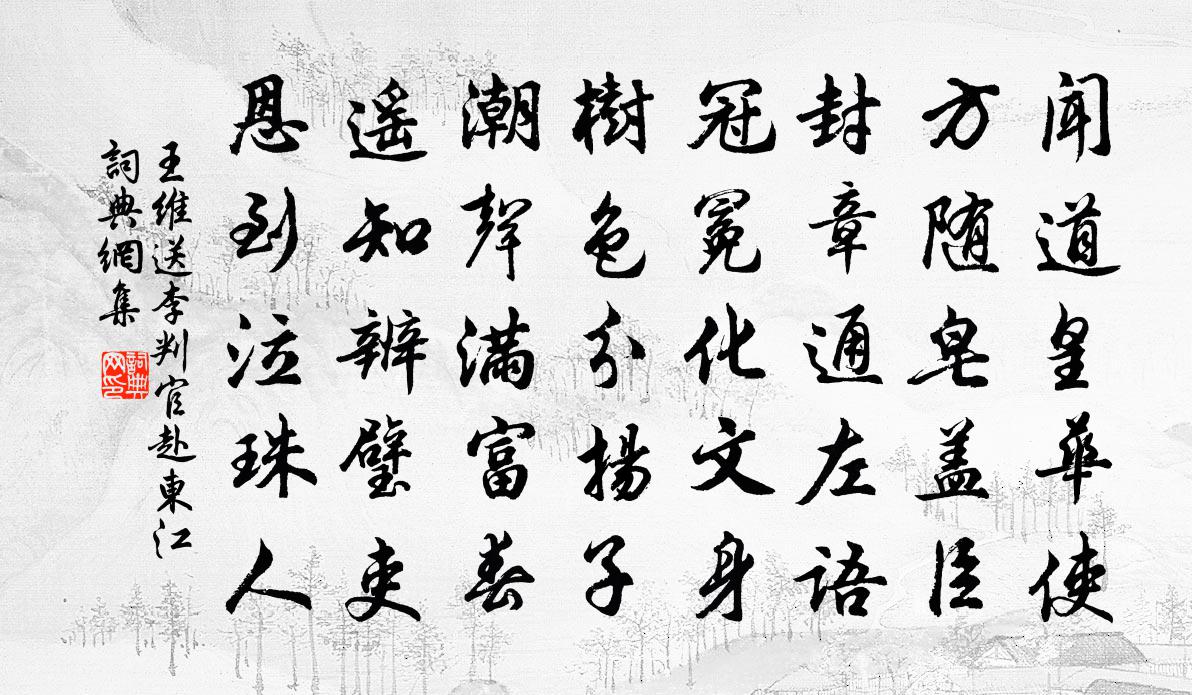 闻道皇華使
方随皂盖臣
封章通左語
冠冕化文身
樹色分揚子
潮聲满富春
遥知辨璧吏
恩到泣珠人
王維送李判官赴東江
詞典網集
詞典
网印